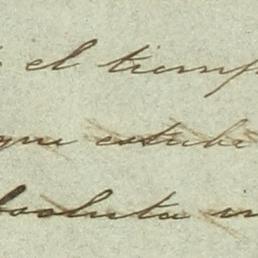 el tiemp
que estube
bsoluta in